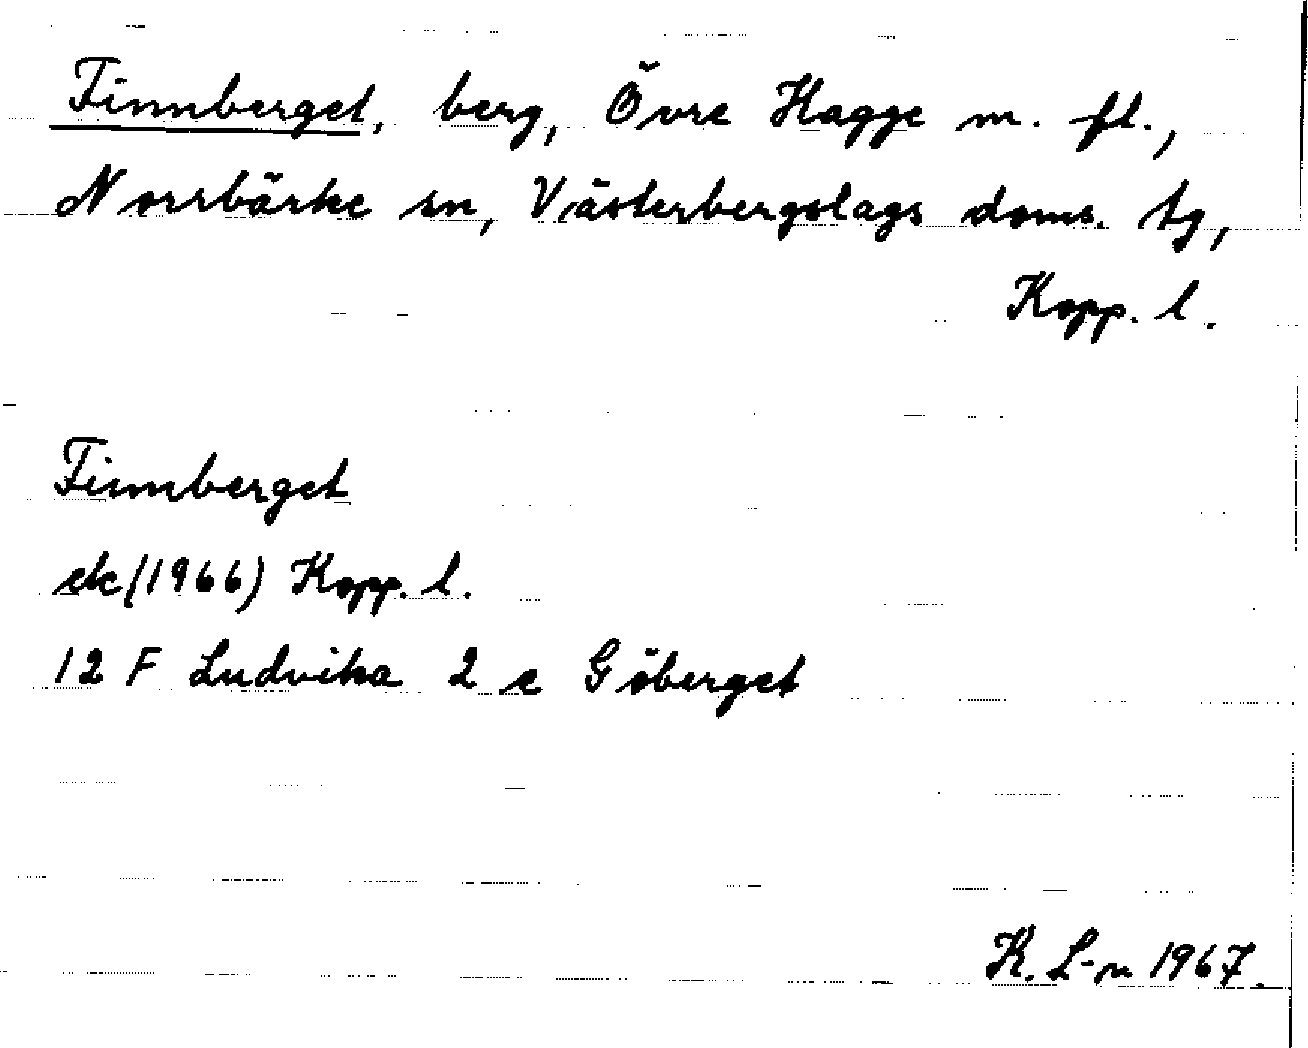 Finnberget, berg, Övre Hagge m. fl.,
Norrbärke sn, Västerbergslags doms. tg,
Kopp. l.
Finnberget
ek (1966) Kopp. l.
12 F Ludvika 2 e Göberget
K. L-n 1967.